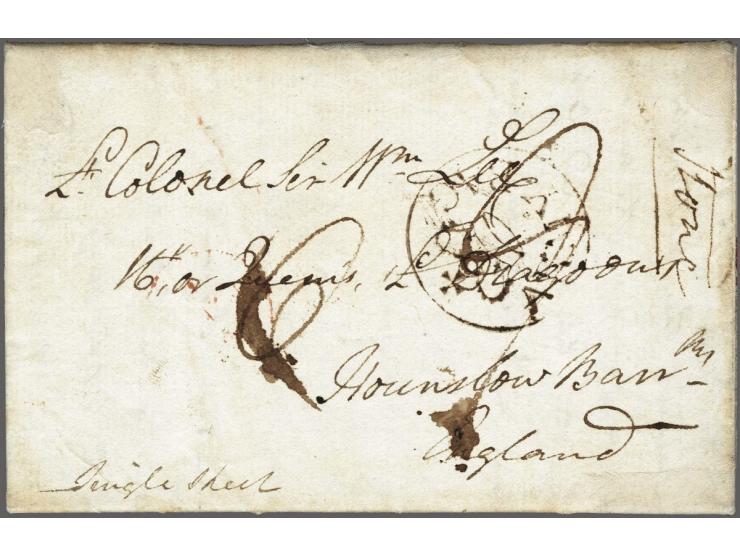 Lt. Colonel Sir Wm Lee
16th, or Queens, Lt Dragoons
Hounslow Barrks
England
Single Sheet